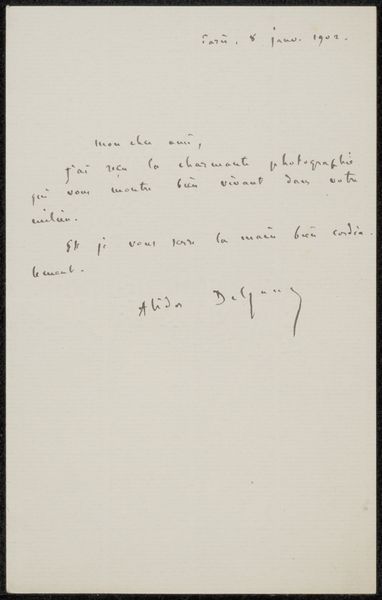 Paris, 8 janv. 1902.
Mon cher ami,
J'ai reçu la charmante photographie
qui vous montre bien vivant dans votre
milieu.
Et je vous serre la main bien cordia
lement.